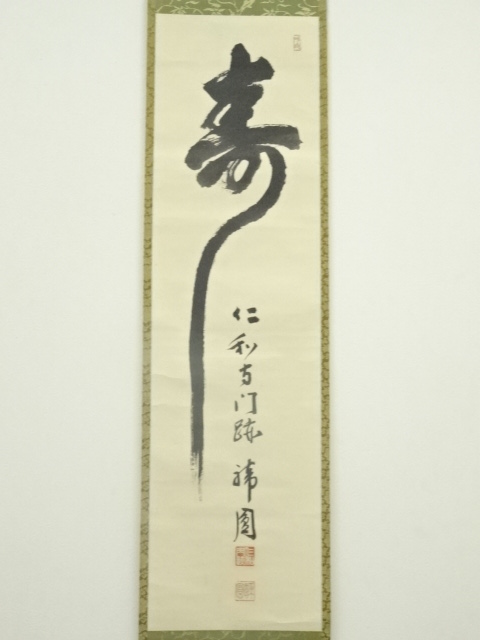 寿
仁和寺门跡